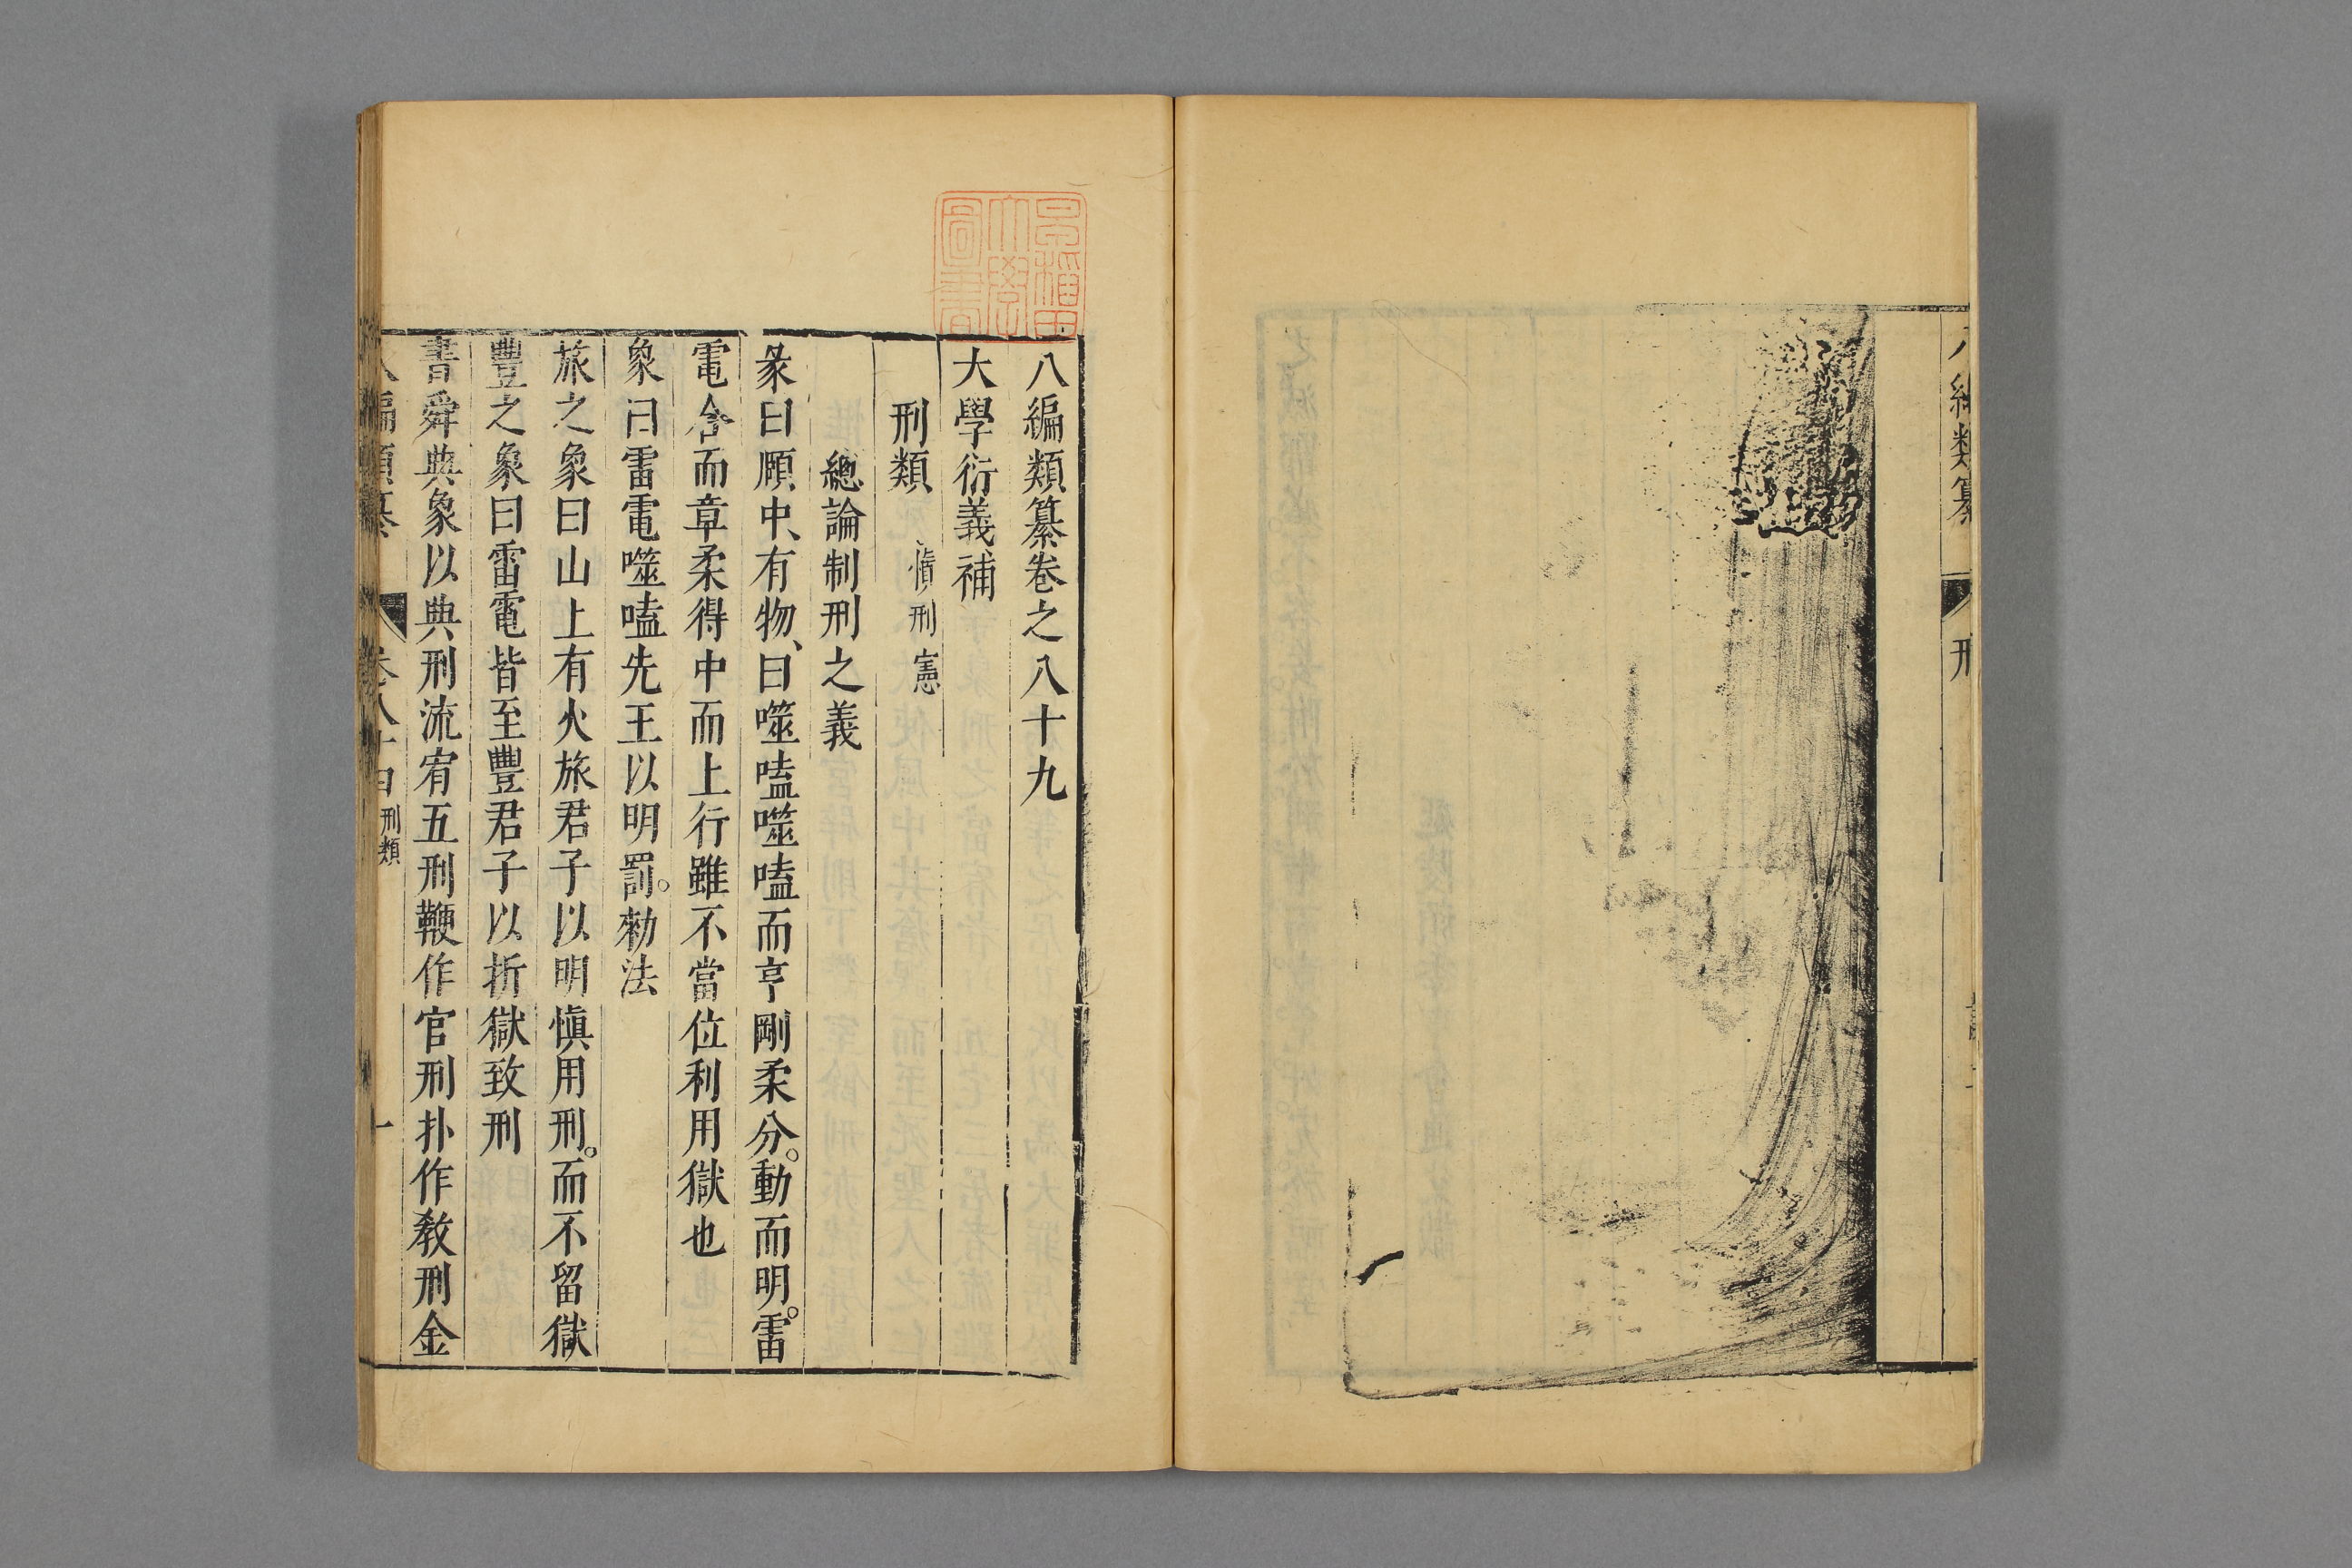 編類纂
刑
早稲田大學圖書
八編類纂卷之八十九
大學衍義補
刑類 慎刑憲
總論制刑之義
彖曰頤中、有物、曰噬嗑噬嗑而亨剛柔分。動而明。雷
電合而章柔得中而上行雖不當位利用獄也
象曰雷電噬嗑先王以明罰。勑法
旅之象曰山上有火旅君子以明慎用刑。而不留獄
豐之象曰雷電皆至豐君子以折獄致刑
書舜典象以典刑流宥五刑鞭作官刑扑作教刑金
編類纂 卷八十 刑類 一